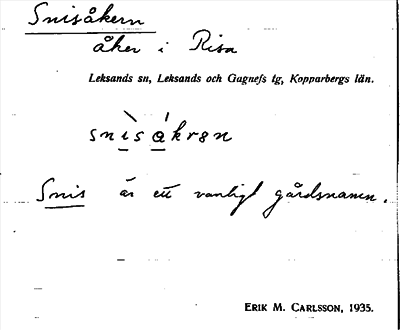 Snisåkern
åker i Risa
Leksands sn, Leksands och Gagnefs tg, Kopparbergs län.
snisåkrən
Snis är ett vanligt gårdsnamn.
ERIK M. CARLSSON, 1935.